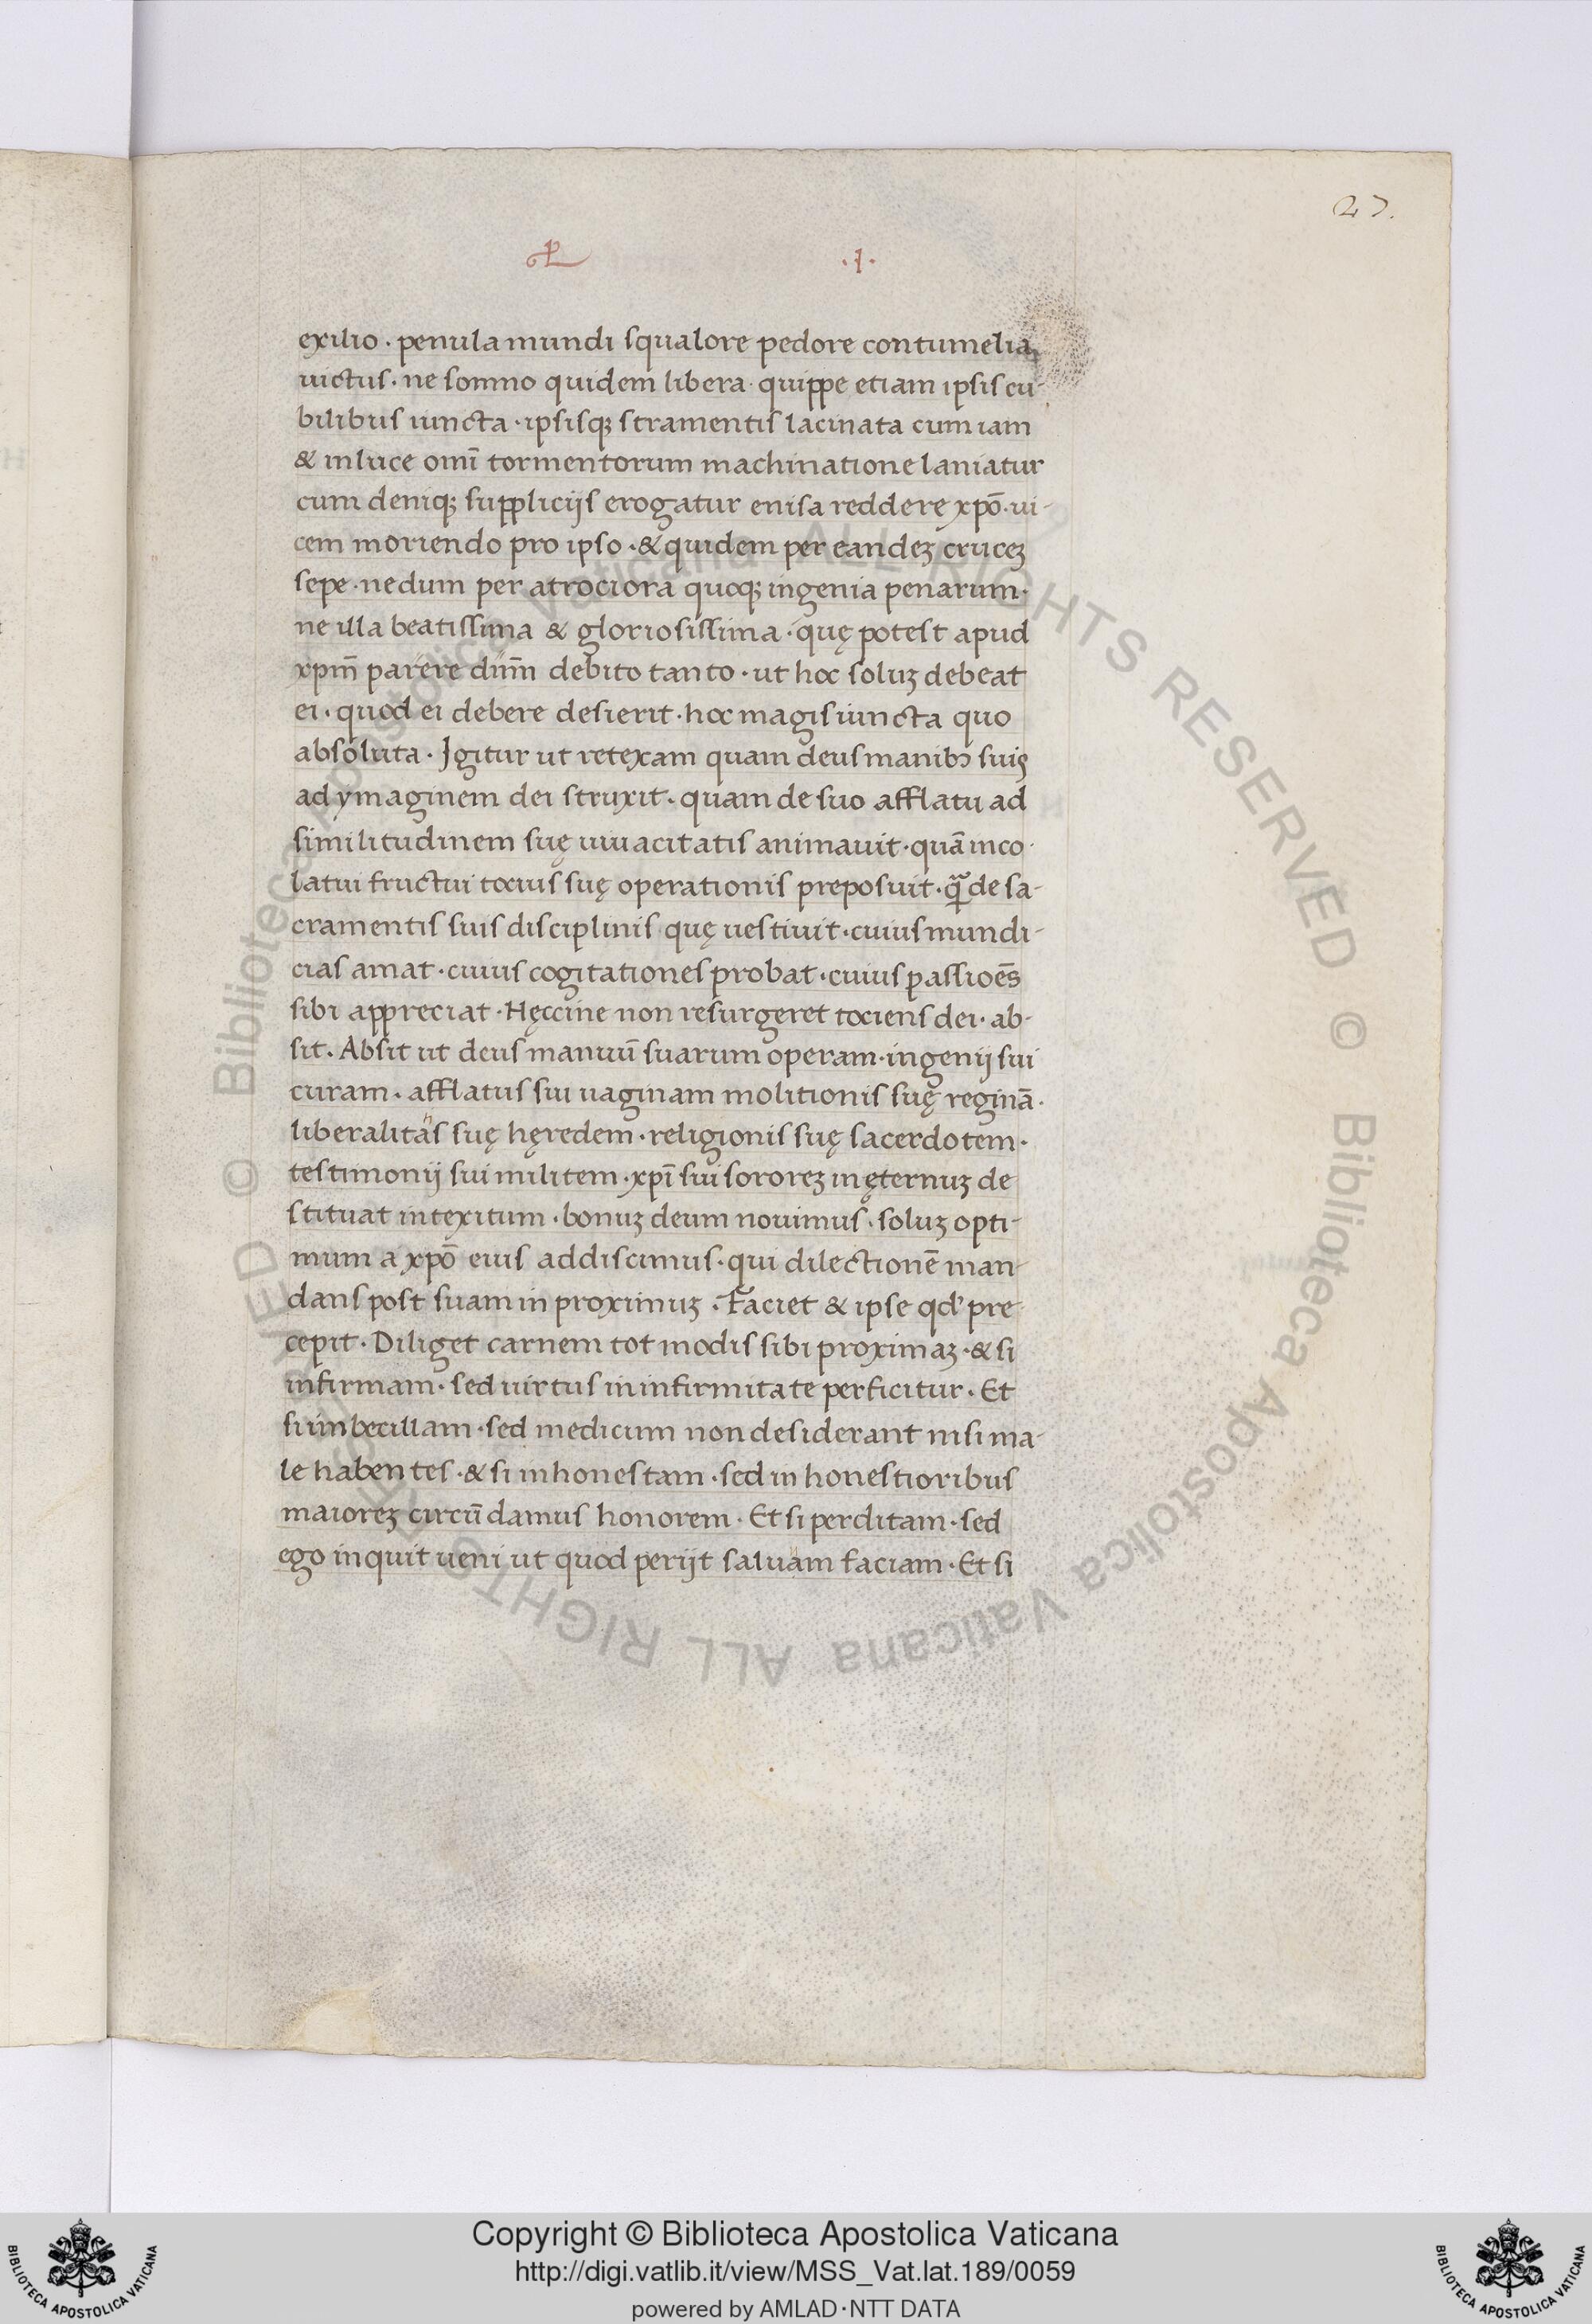 27.
.I.
exilio · penula mundi squalore pedore contumelia
uictus · ne somno quidem libera · quippe etiam ipsis cu-
bilibus iuncta · ipsisqꝫ stramentis lacinata cum iam
& in luce omī tormentorum machinatione laniatur
cum deniqꝫ supplicijs erogatur enisa reddere xpō · ui-
cem moriendo pro ipso · & quidem per eandeꝫ cruceꝫ
sepe · nedum per atrociora quoqꝫ ingenia penarum ·
ne illa beatissima & gloriosissima · quę potest apud
xpm̄ parere dum̄ debito tanto · ut hoc soluꝫ debeat
ei · quod ei debere desierit · hoc magis iuncta quo
absoluta · Igitur ut retexam quam deus manibꝰ suis
ad ymaginem dei struxit · quam de suo afflatu ad
similitudinem suę uiuacitatis animauit · quā inco-
latui fructui tocius suę operationis preposuit · quā de sa-
cramentis suis disciplinis quę uestiuit · cuius mundi-
cias amat · cuius cogitationes probat · cuius passioēs
sibi appreciat · Hęccine non resurgeret tociens dei · ab-
sit · Absit ut deus manuū suarum operam · ingenij sui
curam · afflatus sui uaginam molitionis suę reginā ·
liberalitas suę hęredem · religionis suę sacerdotem ·
testimonij sui militem · xpī sui sororeꝫ in ęternuꝫ de
stituat in texitum · bonuꝫ deum nouimus · soluꝫ opti-
mum a xpō eius addiscimus · qui dilectionē man-
dans post suam in proximuꝫ · Faciet & ipse qd' pre-
cepit · Diliget carnem tot modis sibi proximaꝫ · & si
infirmam · sed uirtus in infirmitate perficitur · Et
si imbecillam · sed medicum non desiderant nisi ma-
le habentes · & si inhonestam · sed inhonestioribus
maioreꝫ circūdamus honorem · Et si perditam · sed
ego inquit ueni ut quod perijt saluum faciam · Et si
© Biblioteca Apostolica Vaticana ALL RIGHTS RESERVED © Biblioteca Apostolica Vaticana ALL RIGHTS RESERVED
Copyright © Biblioteca Apostolica Vaticana
http://digi.vatlib.it/view/MSS_Vat.lat.189/0059
powered by AMLAD·NTT DATA
BIBLIOTECA APOSTOLICA VATICANA
BIBLIOTECA APOSTOLICA VATICANA